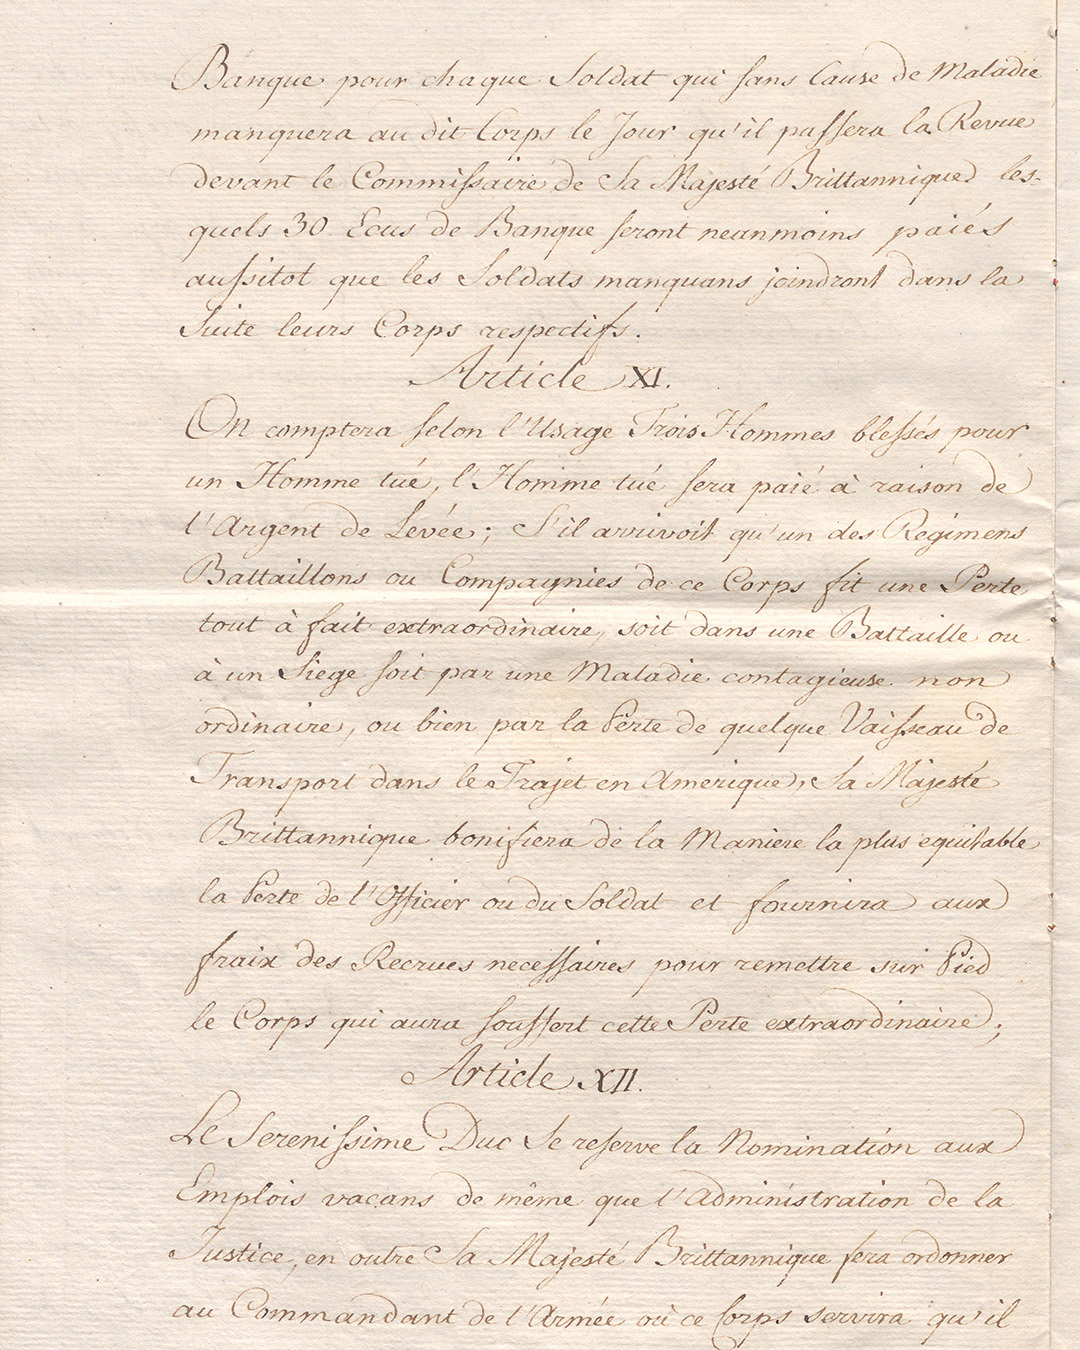 Banque pour chaque Soldat qui sans Cause de Maladie
manquera au dit Corps le Jour qu'il passera la Revue
devant le Commissaire de Sa Majesté Brittannique les-
quels 30 Ecus de Banque seront neanmoins paiés
aussitot que les Soldats manquans joindront dans la
Suite leurs Corps respectifs.
Article XI.
On comptera selon l'Usage Trois Hommes blessés pour
un Homme tué, l'Homme tué sera paié à raison de
l'Argent de Levée; S'il arrivoit qu'un des Regimens
Battaillons ou Compagnies de ce Corps fit une Perte
tout à fait extraordinaire, soit dans une Battaille ou
à un Siege soit par une Maladie contagieuse non
ordinaire, ou bien par la Perte de quelque Vaisseau de
Transport dans le Trajet en Amerique, Sa Majesté
Brittannique bonifiera de la Maniere la plus equitable
la Perte de l'Officier ou du Soldat et fournira aux
fraix des Recrues necessaires pour remettre sur Pied
le Corps qui aura souffert cette Perte extraordinaire;
Article XII.
Le Serenissime Duc Se reserve la Nomination aux
Emplois vacans de même que l'Administration de la
Justice, en outre Sa Majesté Brittannique fera ordonner
au Commandant de l'Armée où ce Corps servira qu'il